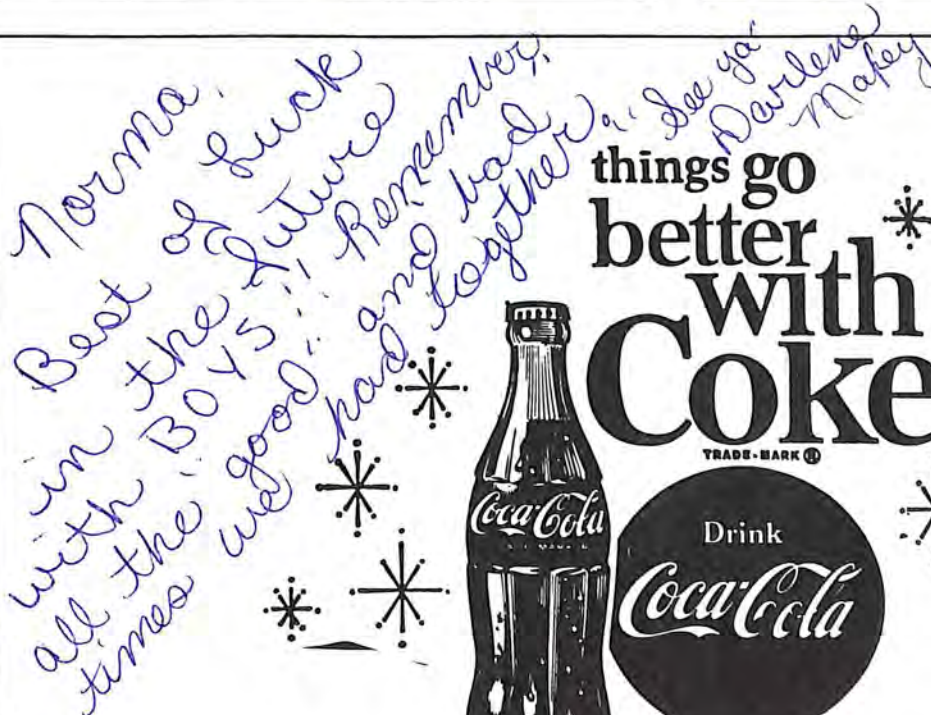 Norma,
Best of luck
in the future
with "BOYS"!! Remember,
all the good.. and bad
times we had together".
See ya'
Darlene
Makey
things go
better
with
Coke
TRADE-MARK ®
Coca-Cola
Drink
Coca-Cola